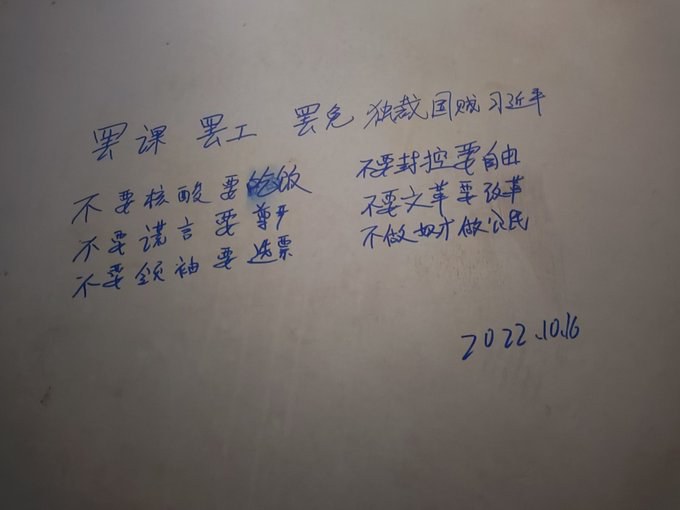 罢课 罢工 罢免独裁国贼习近平
不要核酸要吃饭 不要封控要自由
不要谎言要尊严 不要文革要改革
不要领袖要选票 不做奴才做公民
2022.10.16